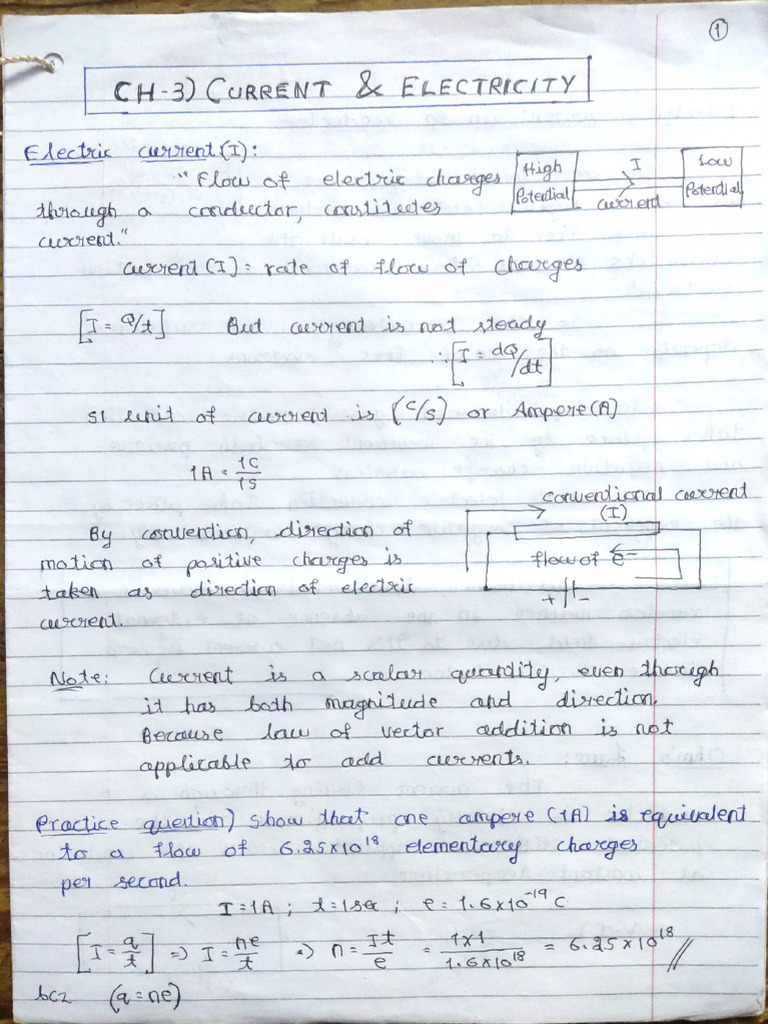 1
CH-3) CURRENT & ELECTRICITY
Electric current(I):
"Flow of electric charges
through a conductor, constitutes
current."
High
Potential
I
current
Low
Potential
current (I): rate of flow of charges
[I = Q/t] But current is not steady
∴ [I = dQ/dt]
SI unit of current is (C/s) or Ampere(A)
1A = 1C/1S
conventional current
(I)
flow of e⁻
+ -
By convention, direction of
motion of positive charges is
taken as direction of electric
current.
Note: Current is a scalar quantity, even though
it has both magnitude and direction.
Because law of vector addition is not
applicable to add currents.
Practice question) show that one ampere (1A) is equivalent
to a flow of 6.25x10¹⁸ elementary charges
per second.
I=1A ; t=1sec ; e=1.6x10⁻¹⁹ C
[I = q/t] => I = ne/t => n = It/e = 1x1/1.6x10¹⁸ = 6.25x10¹⁸ //
bcz (q=ne)